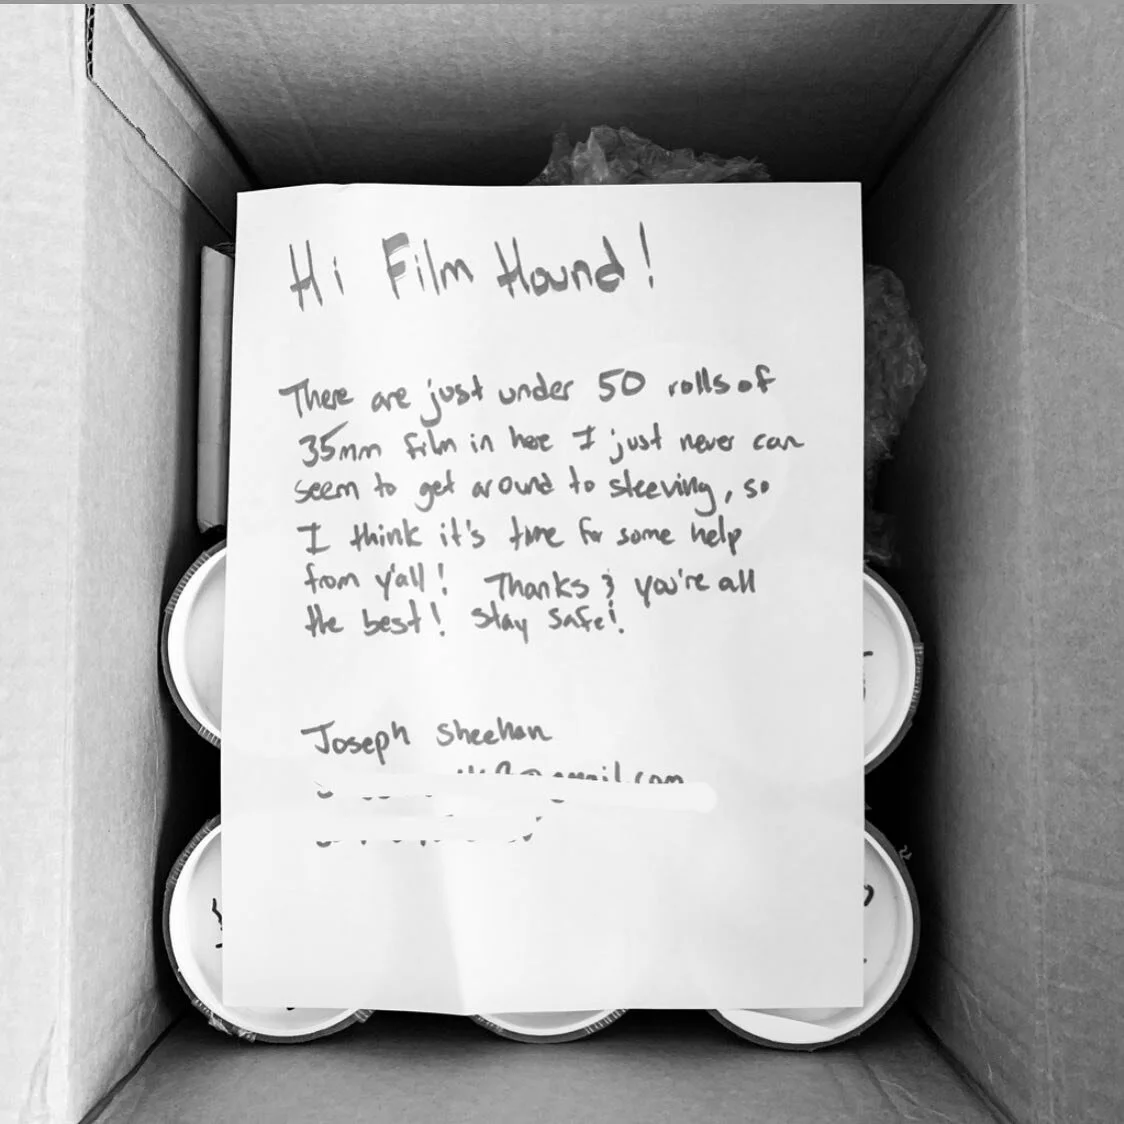 Hi Film Hound!
There are just under 50 rolls of
35mm film in here I just never can
seem to get around to sleeving, so
I think it's time for some help
from y'all! Thanks & you're all
the best! Stay safe!
Joseph Sheehan
@gmail.com